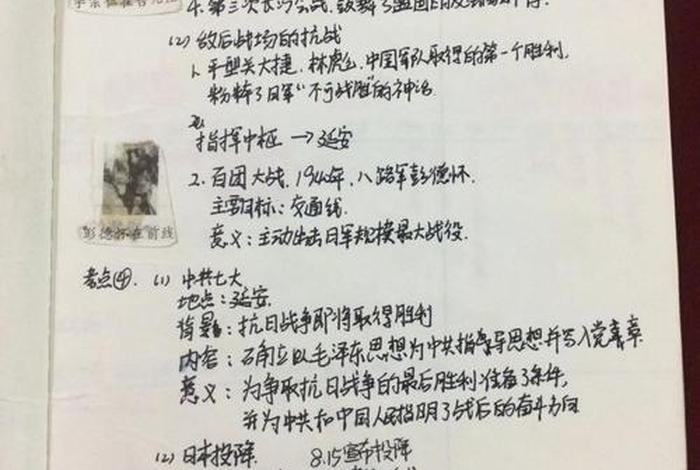 李宗仁在台儿庄
4.第三次长沙会战,鼓舞了盟国
(2) 敌后战场的抗战
1、平型关大捷,林彪,中国军队取得的第一个胜利,
粉碎了日军“不可战胜”的神话
指挥中枢 →延安
2.百团大战,1940年,八路军彭德怀.
主要目标:交通线.
意义:主动出击日军规模最大战役.
彭德怀在前线
考点④. (1) 中共七大
地点:延安
背景:抗日战争即将取得胜利
内容:确立以毛泽东思想为中共指导思想并写入党章
意义:为争取抗日战争的最后胜利准备了条件,
并为中共和中国人民指明了战后的奋斗方向
(2)日本投降 8.15宣布投降